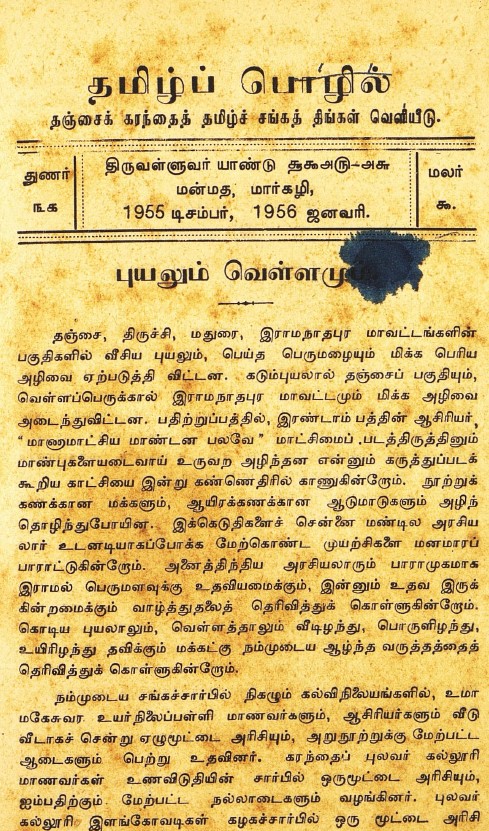 தமிழ்ப் பொழில்
தஞ்சைக் கரந்தைத் தமிழ்ச் சங்கத் திங்கள் வெளியீடு.
துணர்
௩௧
திருவள்ளுவர் யாண்டு ௲௯௱௮௬-௮௭
மன்மத, மார்கழி,
1955 டிசம்பர், 1956 ஜனவரி.
மலர்
௯.
புயலும்
தஞ்சை, திருச்சி, மதுரை, இராமநாதபுர மாவட்டங்களின்
பகுதிகளில் வீசிய புயலும், பெய்த பெருமழையும் மிக்க பெரிய
அழிவை ஏற்படுத்தி விட்டன. கடும்புயலால் தஞ்சைப் பகுதியும்,
வெள்ளப்பெருக்கால் இராமநாதபுர மாவட்டமும் மிக்க அழிவை
அடைந்துவிட்டன. பதிற்றுப்பத்தில், இரண்டாம் பத்தின் ஆசிரியர்,
“மாணாமாட்சிய மாண்டன பலவே” மாட்சிமைப் படத்திருத்தினும்
மாண்புகளையடைவாய் உருவற அழிந்தன என்னும் கருத்துப்படக்
கூறிய காட்சியை இன்று கண்ணெதிரில் காணுகின்றோம். நூற்றுக்
கணக்கான மக்களும், ஆயிரக்கணக்கான ஆடுமாடுகளும் அழிந்
தொழிந்துபோயின. இக்கெடுதிகளைச் சென்னை மண்டில அரசிய
லார் உடனடியாகப்போக்க மேற்கொண்ட முயற்சிகளை மனமாரப்
பாராட்டுகின்றோம். அனைத்திந்திய அரசியலாரும் பாராமுகமாக
இராமல் பெருமளவுக்கு உதவியமைக்கும், இன்னும் உதவ இருக்
கின்றமைக்கும் வாழ்த்துதலைத் தெரிவித்துக் கொள்ளுகின்றோம்.
கொடிய புயலாலும், வெள்ளத்தாலும் வீடிழந்து, பொருளிழந்து,
உயிரிழந்து தவிக்கும் மக்கட்கு நம்முடைய ஆழ்ந்த வருத்தத்தைத்
தெரிவித்துக் கொள்ளுகின்றோம்.
நம்முடைய சங்கச்சார்பில் நிகழும் கல்விநிலையங்களில், உமா
மகேசுவர உயர்நிலைப்பள்ளி மாணவர்களும், ஆசிரியர்களும் வீடு
வீடாகச் சென்று ஏழுமூட்டை அரிசியும், அறுநூற்றுக்கு மேற்பட்ட
ஆடைகளும் பெற்று உதவினர். கரந்தைப் புலவர் கல்லூரி
மாணவர்கள் உணவிடுதியின் சார்பில் ஒருமூட்டை அரிசியும்,
ஐம்பதிற்கும் மேற்பட்ட நல்லாடைகளும் வழங்கினர். புலவர்
கல்லூரி இளங்கோவடிகள் கழகச்சார்பில் ஒரு மூட்டை அரிசி